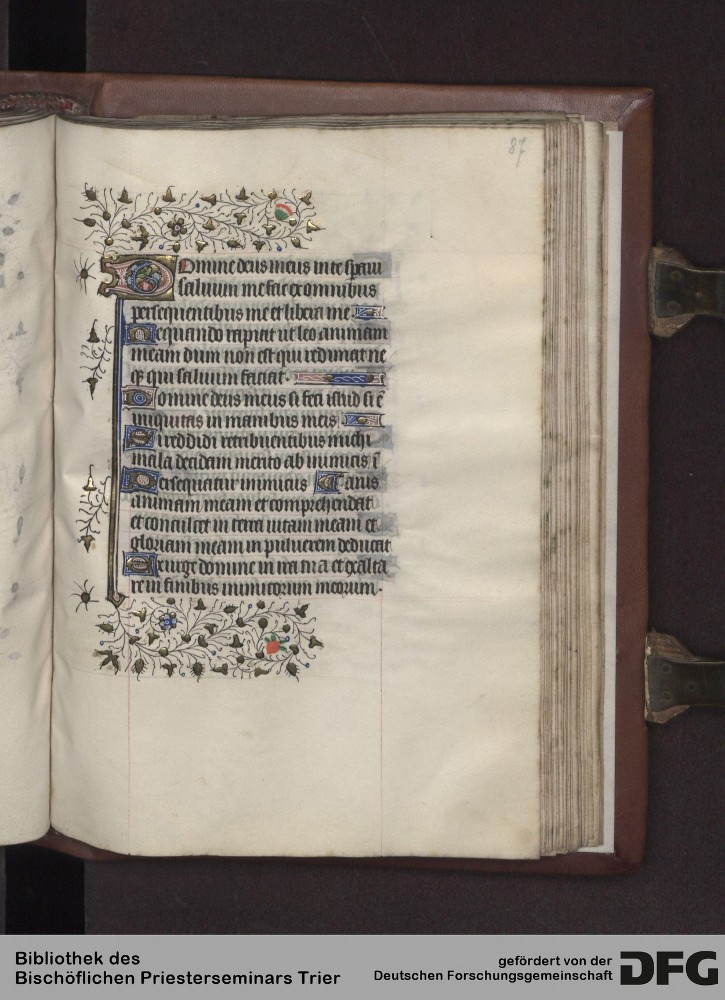 87
Domine deus meus in te speraui
saluum me fac ex omnibus
persequentibus me et libera me
Nequando rapiat ut leo animam
meam dum non est qui redimat ne
qꝫ qui saluum faciat.
Domine deus meus si feci istud si ē
iniquitas in manibus meis
Si reddidi retribuentibus michi
mala decidam merito ab inimicis
Persequatur inimicus
animam meam et comprehendat
et conculcet in terra uitam meam et
gloriam meam in puluerem deducat
Exurge domine in ira tua et exalta
re in finibus inimicorum meorum.
Bibliothek des
Bischöflichen Priesterseminars Trier
gefördert von der
Deutschen Forschungsgemeinschaft
DFG